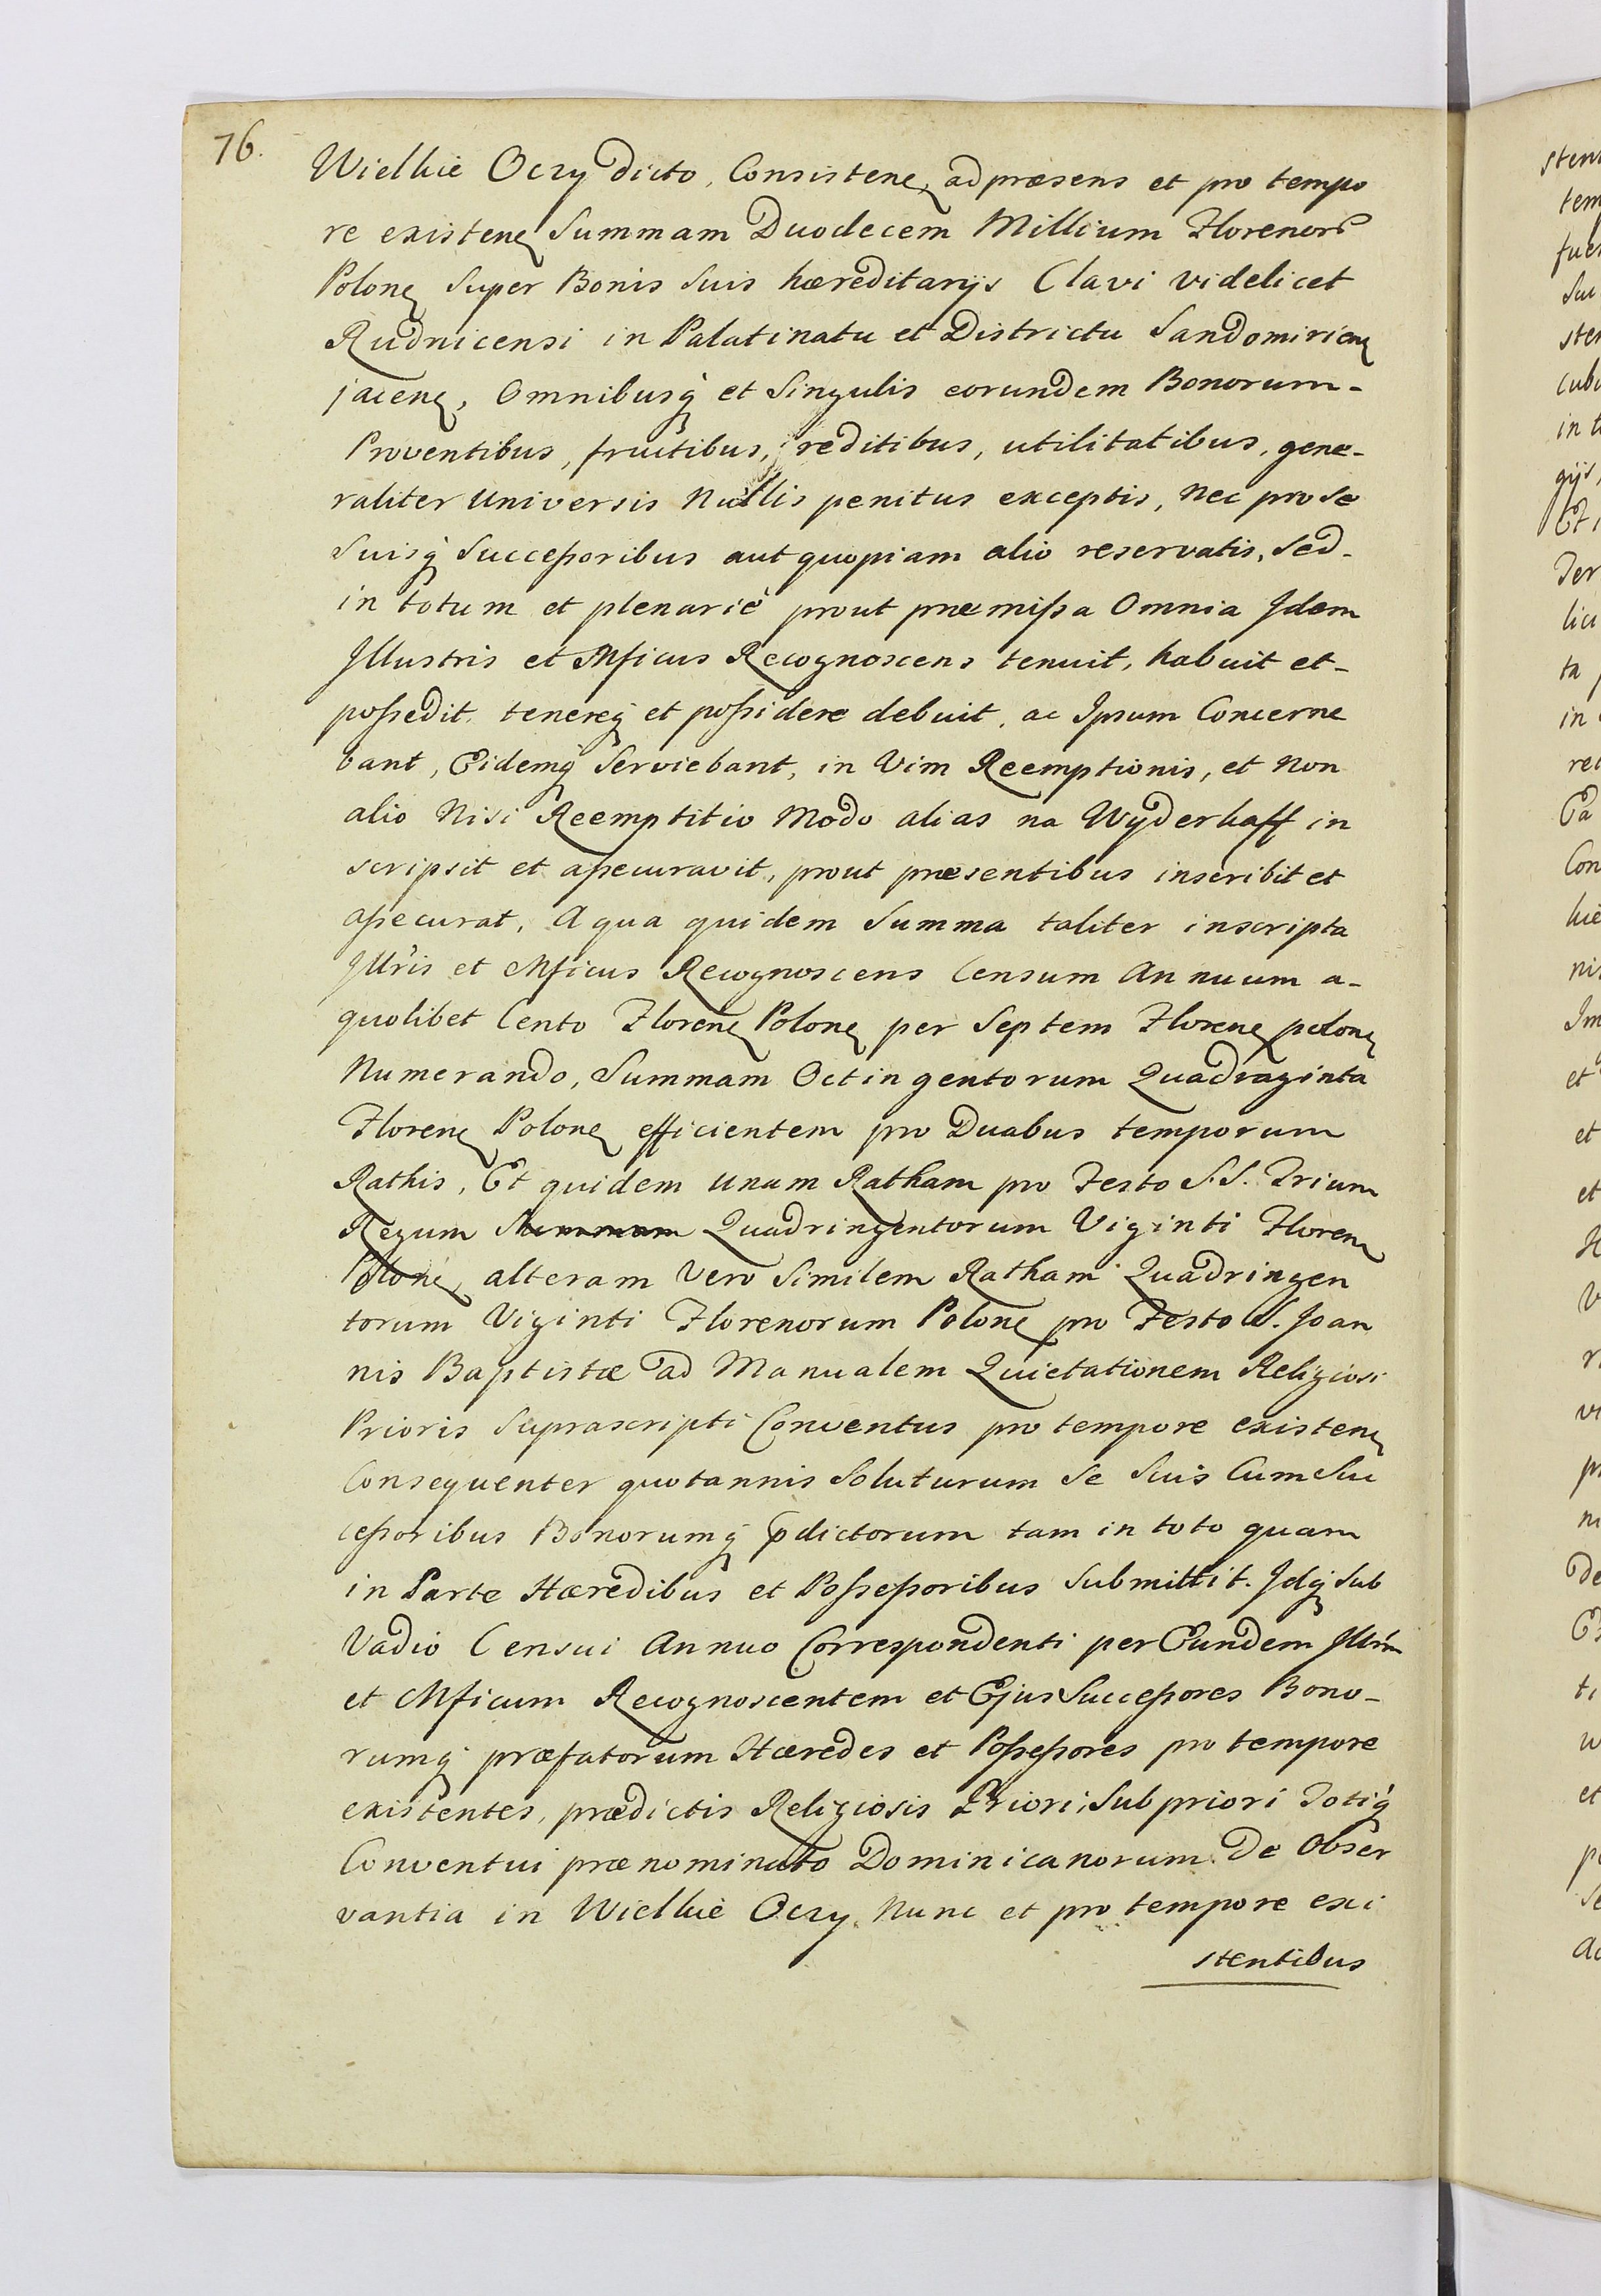 76.
Wielkie Oczy dicto, Consisteneꝭ, ad præsens et pro tempo
re existenꝭ Summam Duodecem Millium Florenorꝭ
Polonꝭ Super Bonis Suis hæreditarijs Clavi videlicet
Rudnicensi in Palatinatu et Districtu Sandomirienꝭ
jacenꝭ, Omnibusq́ et Singulis eorundem Bonorum-
Proventibus, fructibus, reditibus, utilitatibus, gene-
raliter Universis Nullis penitus exceptis, Nec pro Se
Suisq́ Succeßoribus aut quopiam alio reservatis, Sed-
in totum et plenariè prout præmißa Omnia Idem
Illustris et Mficus Recognoscens tenuit, habuit et-
poßedit, tenereq́ et poßidere debuit, ac Ipsum Concerne
bant, Eidemq́ Serviebant, in Vim Reemptionis, et Non
alio Nisi Reemptitio Modo alias na Wyderkaff in
scripsit et aßecuravit, prout præsentibus inscribit et
aßecurat, A qua quidem Summa taliter inscripta
Jllr̃is et Mficus Recognoscens Censum Annuum a-
quolibet Cento Florenꝭ Polonꝭ per Septem Florenꝭ polonꝭ
Numerando, Summam Octingentorum Quadraginta
Florenꝭ Polonꝭ efficientem pro Duabus temporum
Rathis, Et quidem unam Ratham pro Festo S.S. Trium
Regum Summam Quadringentorum Viginti Florenꝭ
Polonꝭ, alteram Vero Similem Ratham Quadringen
torum Viginti Florenorum Polonꝭ pro Festo S. Joan
nis Baptistæ ad Manualem Quietationem Religiosi
Prioris Suprascripti Conventus pro tempore existenꝭ
Consequenter quotannis Soluturum Se Suis Cum Suc
ceßoribus Bonorumq́ p̃dictorum tam in toto quam
in Parte Hæredibus et Poßeßoribus Submittit. Idq́ Sub
Vadio Censui Annuo Correspondenti per Eundem Jllr̃m
et Mficum Recognoscentem et Ejus Succeßores Bono-
rumq́ præfatorum Hæredes et Poßeßores pro tempore
existentes, prædictis Religiosis Priori, Subpriori Totiq́
Conventui prænominato Dominicanorum De Obser
vantia in Wielkie Oczy Nunc et pro tempore exi
stentibus